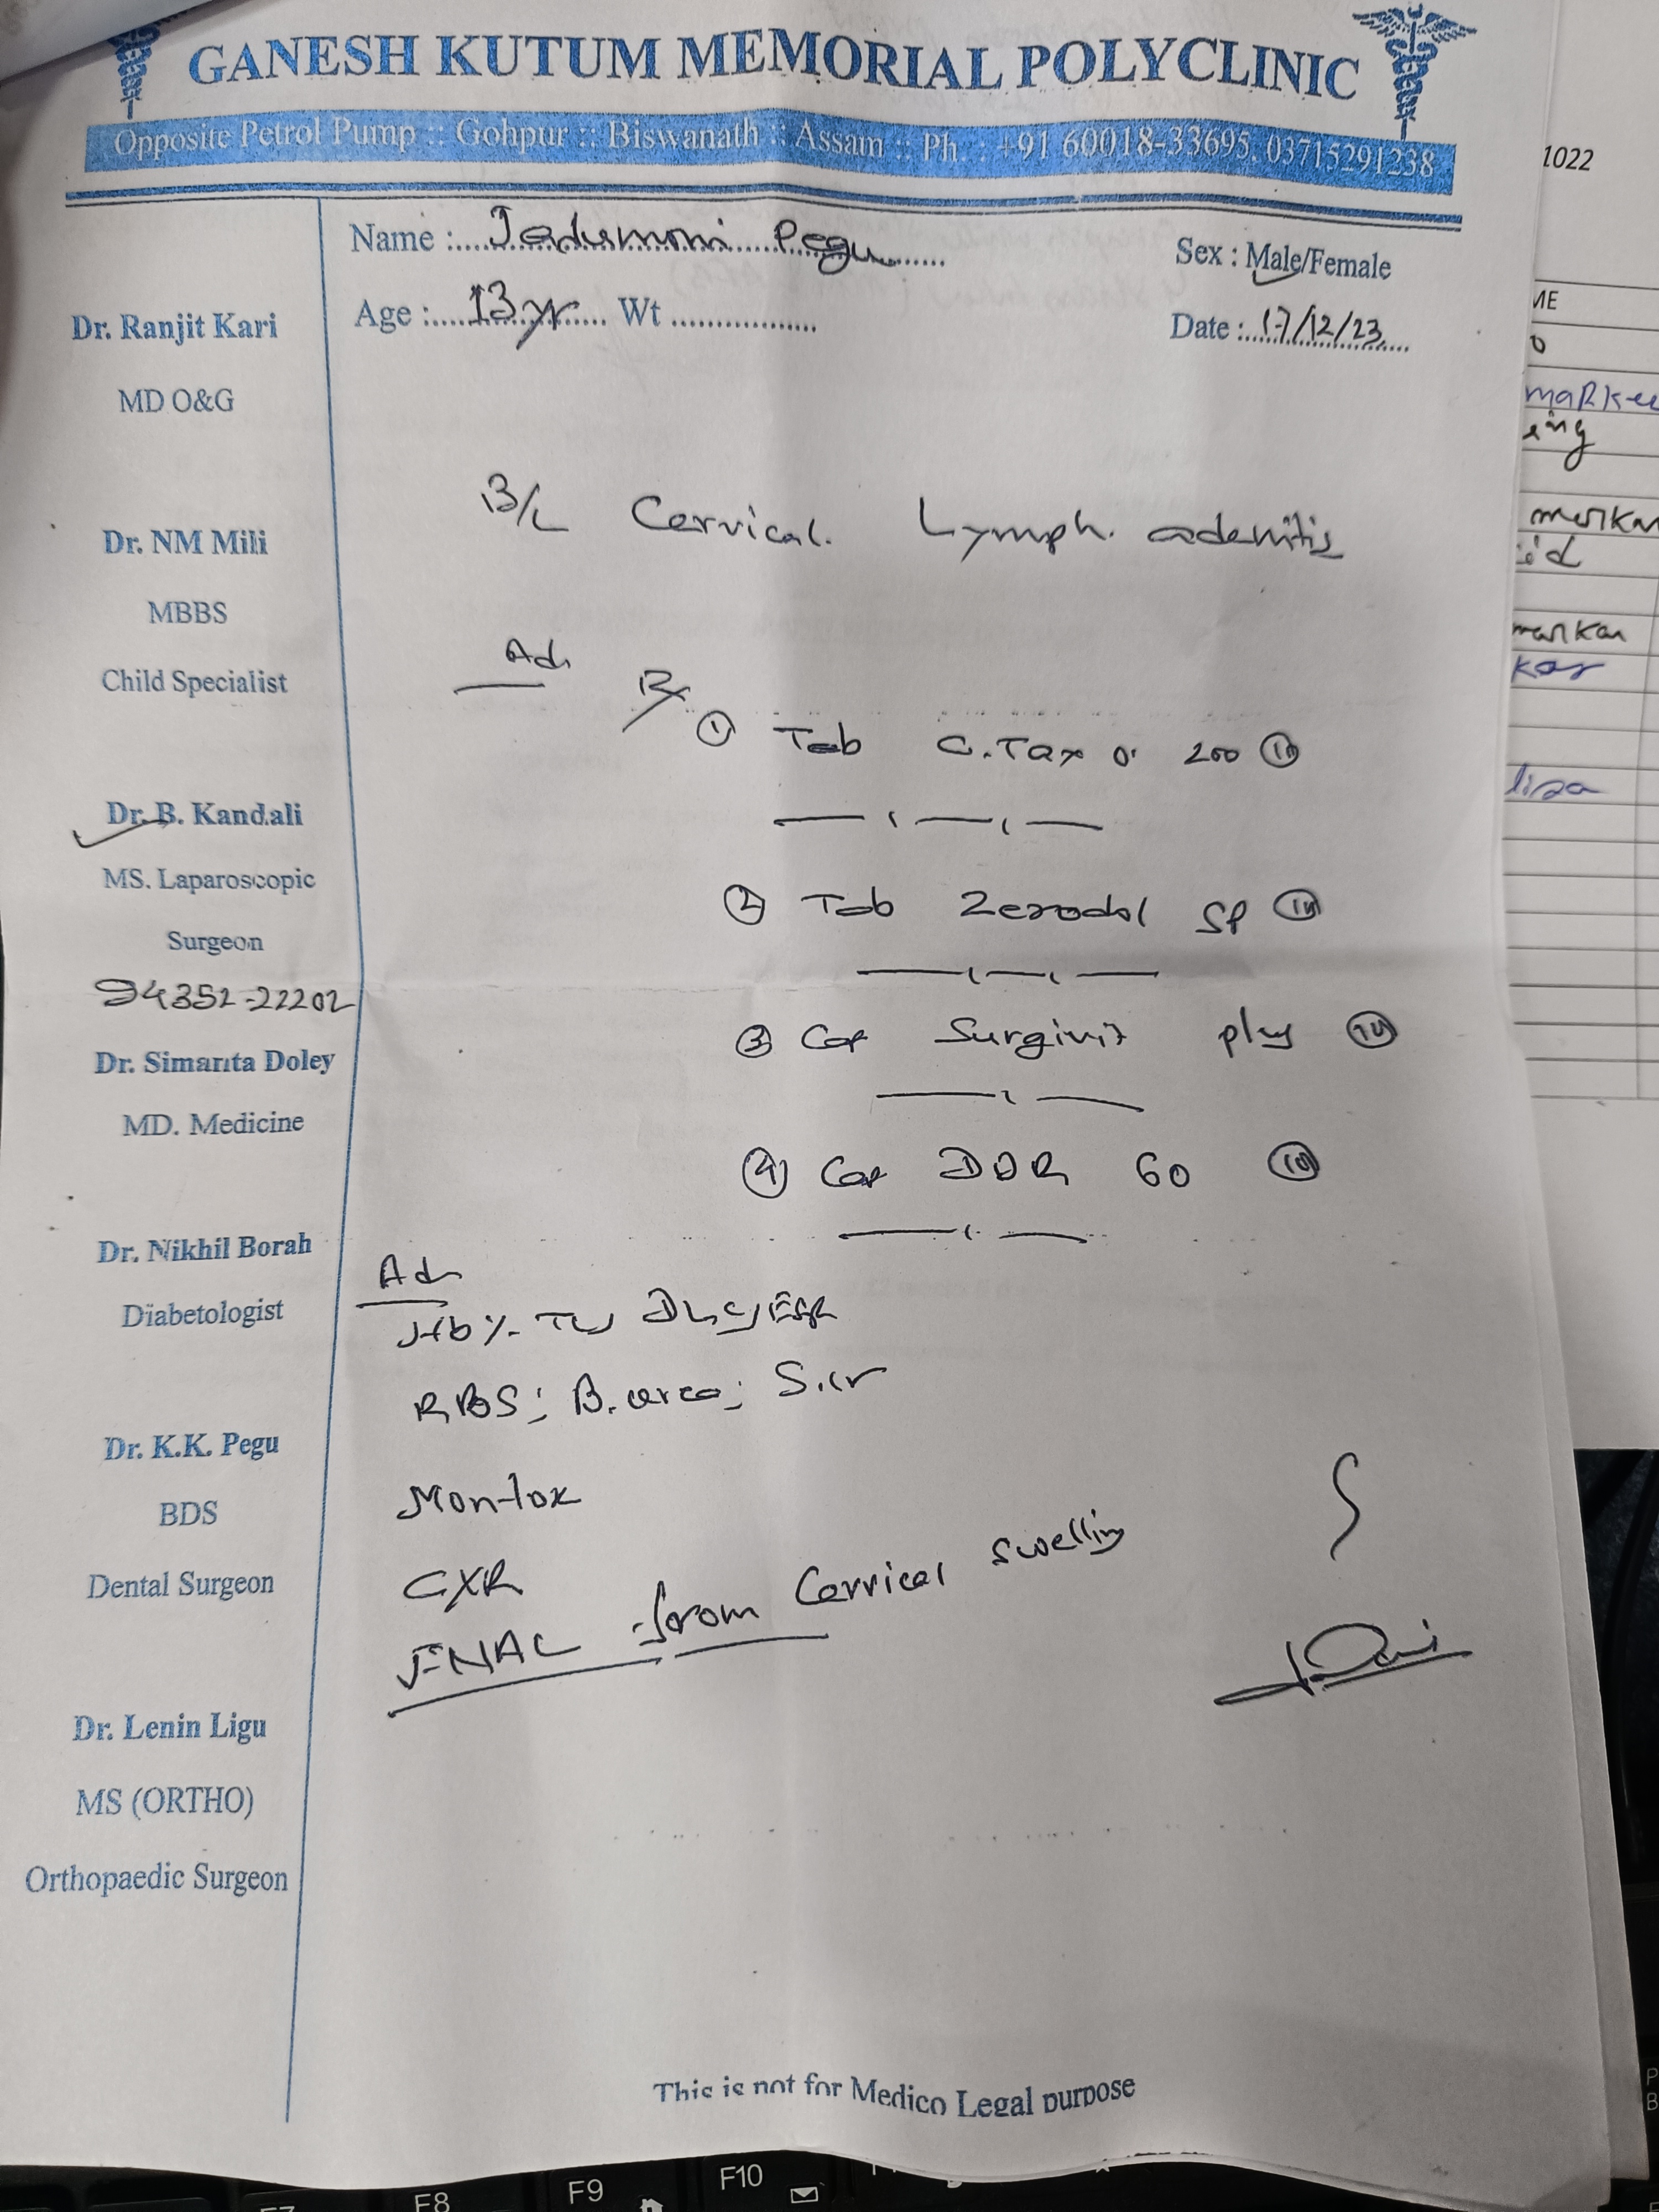 GANESH KUTUM MEMORIAL POLYCLINIC
Opposite Petrol Pump :: Gohpur :: Biswanath :: Assam :: Ph. : +91 60018-33695, 03715291238
Name : Jadumoni Pegu
Sex : Male/Female
Age : 13 yr Wt
Date : 17/12/23
Dr. Ranjit Kari
MD O&G
Dr. NM Mili
MBBS
Child Specialist
Dr. B. Kandali
MS. Laparoscopic
Surgeon
94352-22202
Dr. Simanta Doley
MD. Medicine
Dr. Nikhil Borah
Diabetologist
Dr. K.K. Pegu
BDS
Dental Surgeon
Dr. Lenin Ligu
MS (ORTHO)
Orthopaedic Surgeon
B/L Cervical. Lymph. adenitis
Adv
Rx
① Tab C.Tax O 200 ⑩
② Tab Zerodol SP ⑩
③ Cap Surgivit plus ⑩
④ Cap DDR 60 ⑩
Adv
Hb%. TLC DLC, ESR
RBS; B. urea; S.cr
Montox
CXR
FNAC from Cervical swelling
This is not for Medico Legal purpose
1022
ME
marka
kar
F8
F9
F10